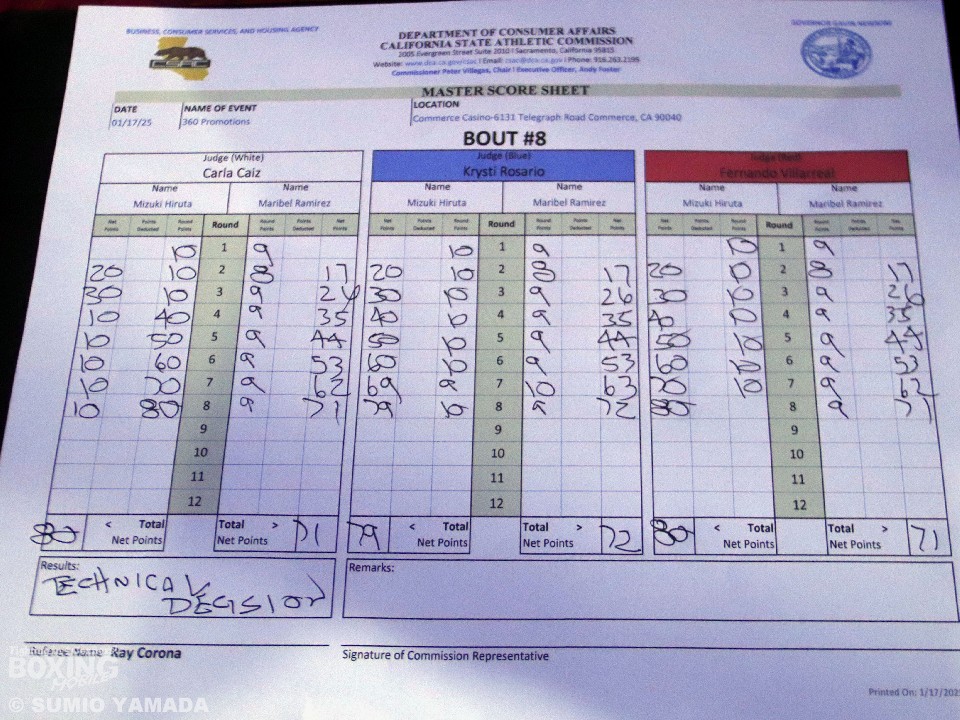 BUSINESS, CONSUMER SERVICES, AND HOUSING AGENCY
GOVERNOR GAVIN NEWSOM
DEPARTMENT OF CONSUMER AFFAIRS
CALIFORNIA STATE ATHLETIC COMMISSION
2005 Evergreen Street Suite 2010 | Sacramento, California 95815
Website: www.dca.ca.gov/csac | Email: csac@dca.ca.gov | Phone: 916.263.2195
Commissioner Peter Villegas, Chair | Executive Officer, Andy Foster
MASTER SCORE SHEET
DATE NAME OF EVENT LOCATION
01/17/25 360 Promotions Commerce Casino-6131 Telegraph Road Commerce, CA 90040
BOUT #8
Judge (White) Judge (Blue) Judge (Red)
Carla Caiz Krysti Rosario Fernando Villarreal
Name Name Name Name Name Name
Mizuki Hiruta Maribel Ramirez Mizuki Hiruta Maribel Ramirez Mizuki Hiruta Maribel Ramirez
Net Points Points Deducted Round Points Round Round Points Points Deducted Net Points Net Points Points Deducted Round Points Round Round Points Points Deducted Net Points Net Points Points Deducted Round Points Round Round Points Points Deducted Net Points
10 1 9 10 1 9 10 1 9
20 10 2 8 17 20 10 2 8 17 20 10 2 8 17
30 10 3 9 26 30 10 3 9 26 30 10 3 9 26
10 40 4 9 35 40 10 4 9 35 40 10 4 9 35
10 50 5 9 44 50 10 5 9 44 50 10 5 9 44
10 60 6 9 53 60 10 6 9 53 60 10 6 9 53
10 70 7 9 62 69 9 7 10 63 70 10 7 9 62
10 80 8 9 71 79 10 8 9 72 80 8 9 71
9 9 9
10 10 10
11 11 11
12 12 12
80 < Total Net Points Total > Net Points 71 79 < Total Net Points Total > Net Points 72 80 < Total Net Points Total > Net Points 71
Results: Remarks:
TECHNICAL
DECISION
Referee Name Ray Corona Signature of Commission Representative
Printed On: 1/17/2025
BOXING
© SUMIO YAMADA